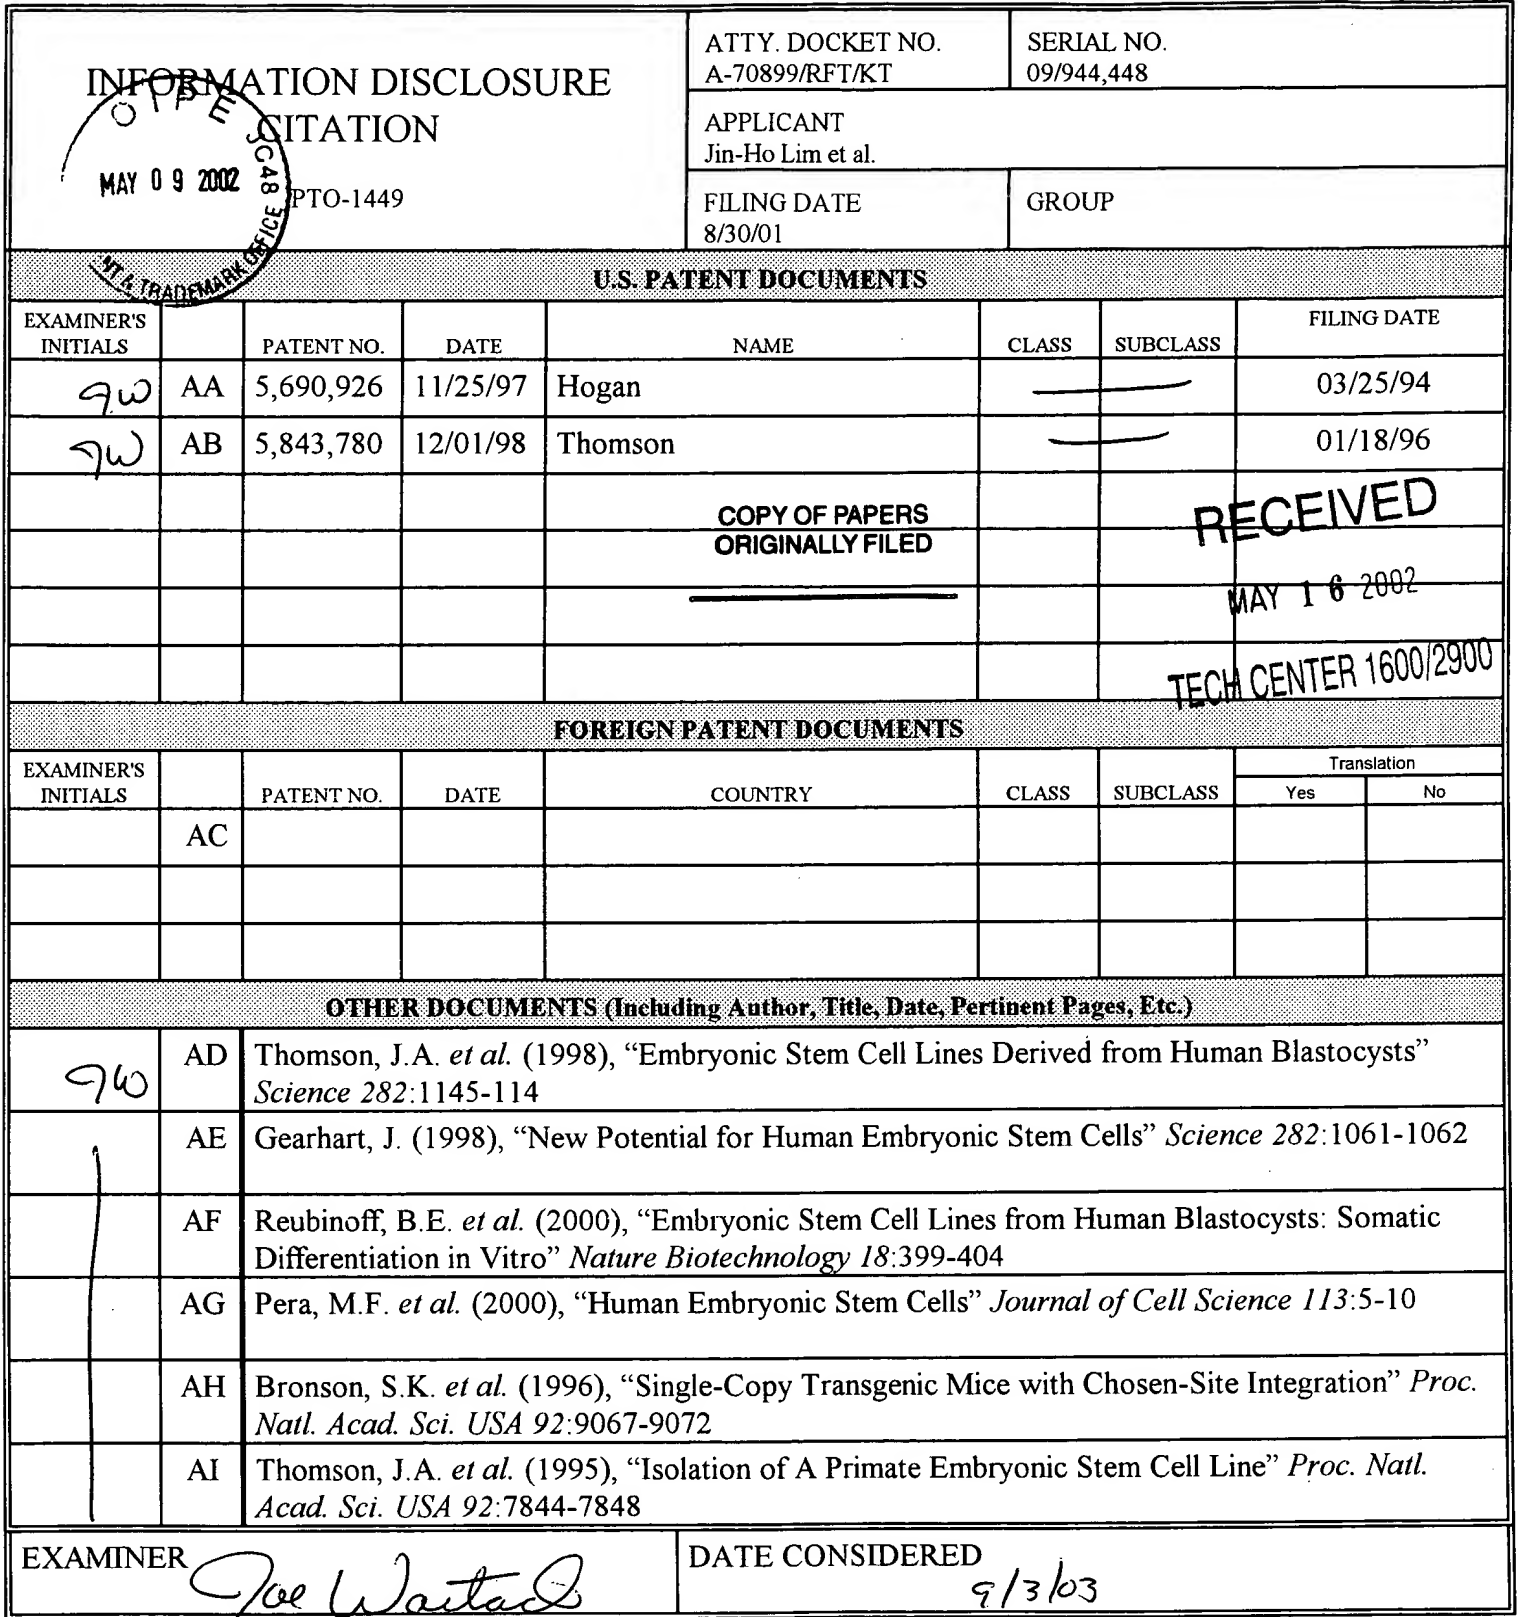 INFORMATION DISCLOSURE
CITATION
PTO-1449
OIPE JC48
MAY 09 2002
NT & TRADEMARK OFFICE
ATTY. DOCKET NO.
A-70899/RFT/KT
SERIAL NO.
09/944,448
APPLICANT
Jin-Ho Lim et al.
FILING DATE
8/30/01
GROUP
U.S. PATENT DOCUMENTS
EXAMINER'S INITIALS PATENT NO. DATE NAME CLASS SUBCLASS FILING DATE
JW AA 5,690,926 11/25/97 Hogan 03/25/94
JW AB 5,843,780 12/01/98 Thomson 01/18/96
COPY OF PAPERS
ORIGINALLY FILED
RECEIVED
MAY 16 2002
TECH CENTER 1600/2900
FOREIGN PATENT DOCUMENTS
EXAMINER'S INITIALS PATENT NO. DATE COUNTRY CLASS SUBCLASS Translation
Yes No
AC
OTHER DOCUMENTS (Including Author, Title, Date, Pertinent Pages, Etc.)
JW AD Thomson, J.A. et al. (1998), “Embryonic Stem Cell Lines Derived from Human Blastocysts”
Science 282:1145-114
AE Gearhart, J. (1998), “New Potential for Human Embryonic Stem Cells” Science 282:1061-1062
AF Reubinoff, B.E. et al. (2000), “Embryonic Stem Cell Lines from Human Blastocysts: Somatic
Differentiation in Vitro” Nature Biotechnology 18:399-404
AG Pera, M.F. et al. (2000), “Human Embryonic Stem Cells” Journal of Cell Science 113:5-10
AH Bronson, S.K. et al. (1996), “Single-Copy Transgenic Mice with Chosen-Site Integration” Proc.
Natl. Acad. Sci. USA 92:9067-9072
AI Thomson, J.A. et al. (1995), “Isolation of A Primate Embryonic Stem Cell Line” Proc. Natl.
Acad. Sci. USA 92:7844-7848
EXAMINER Joe
DATE CONSIDERED
9/3/03